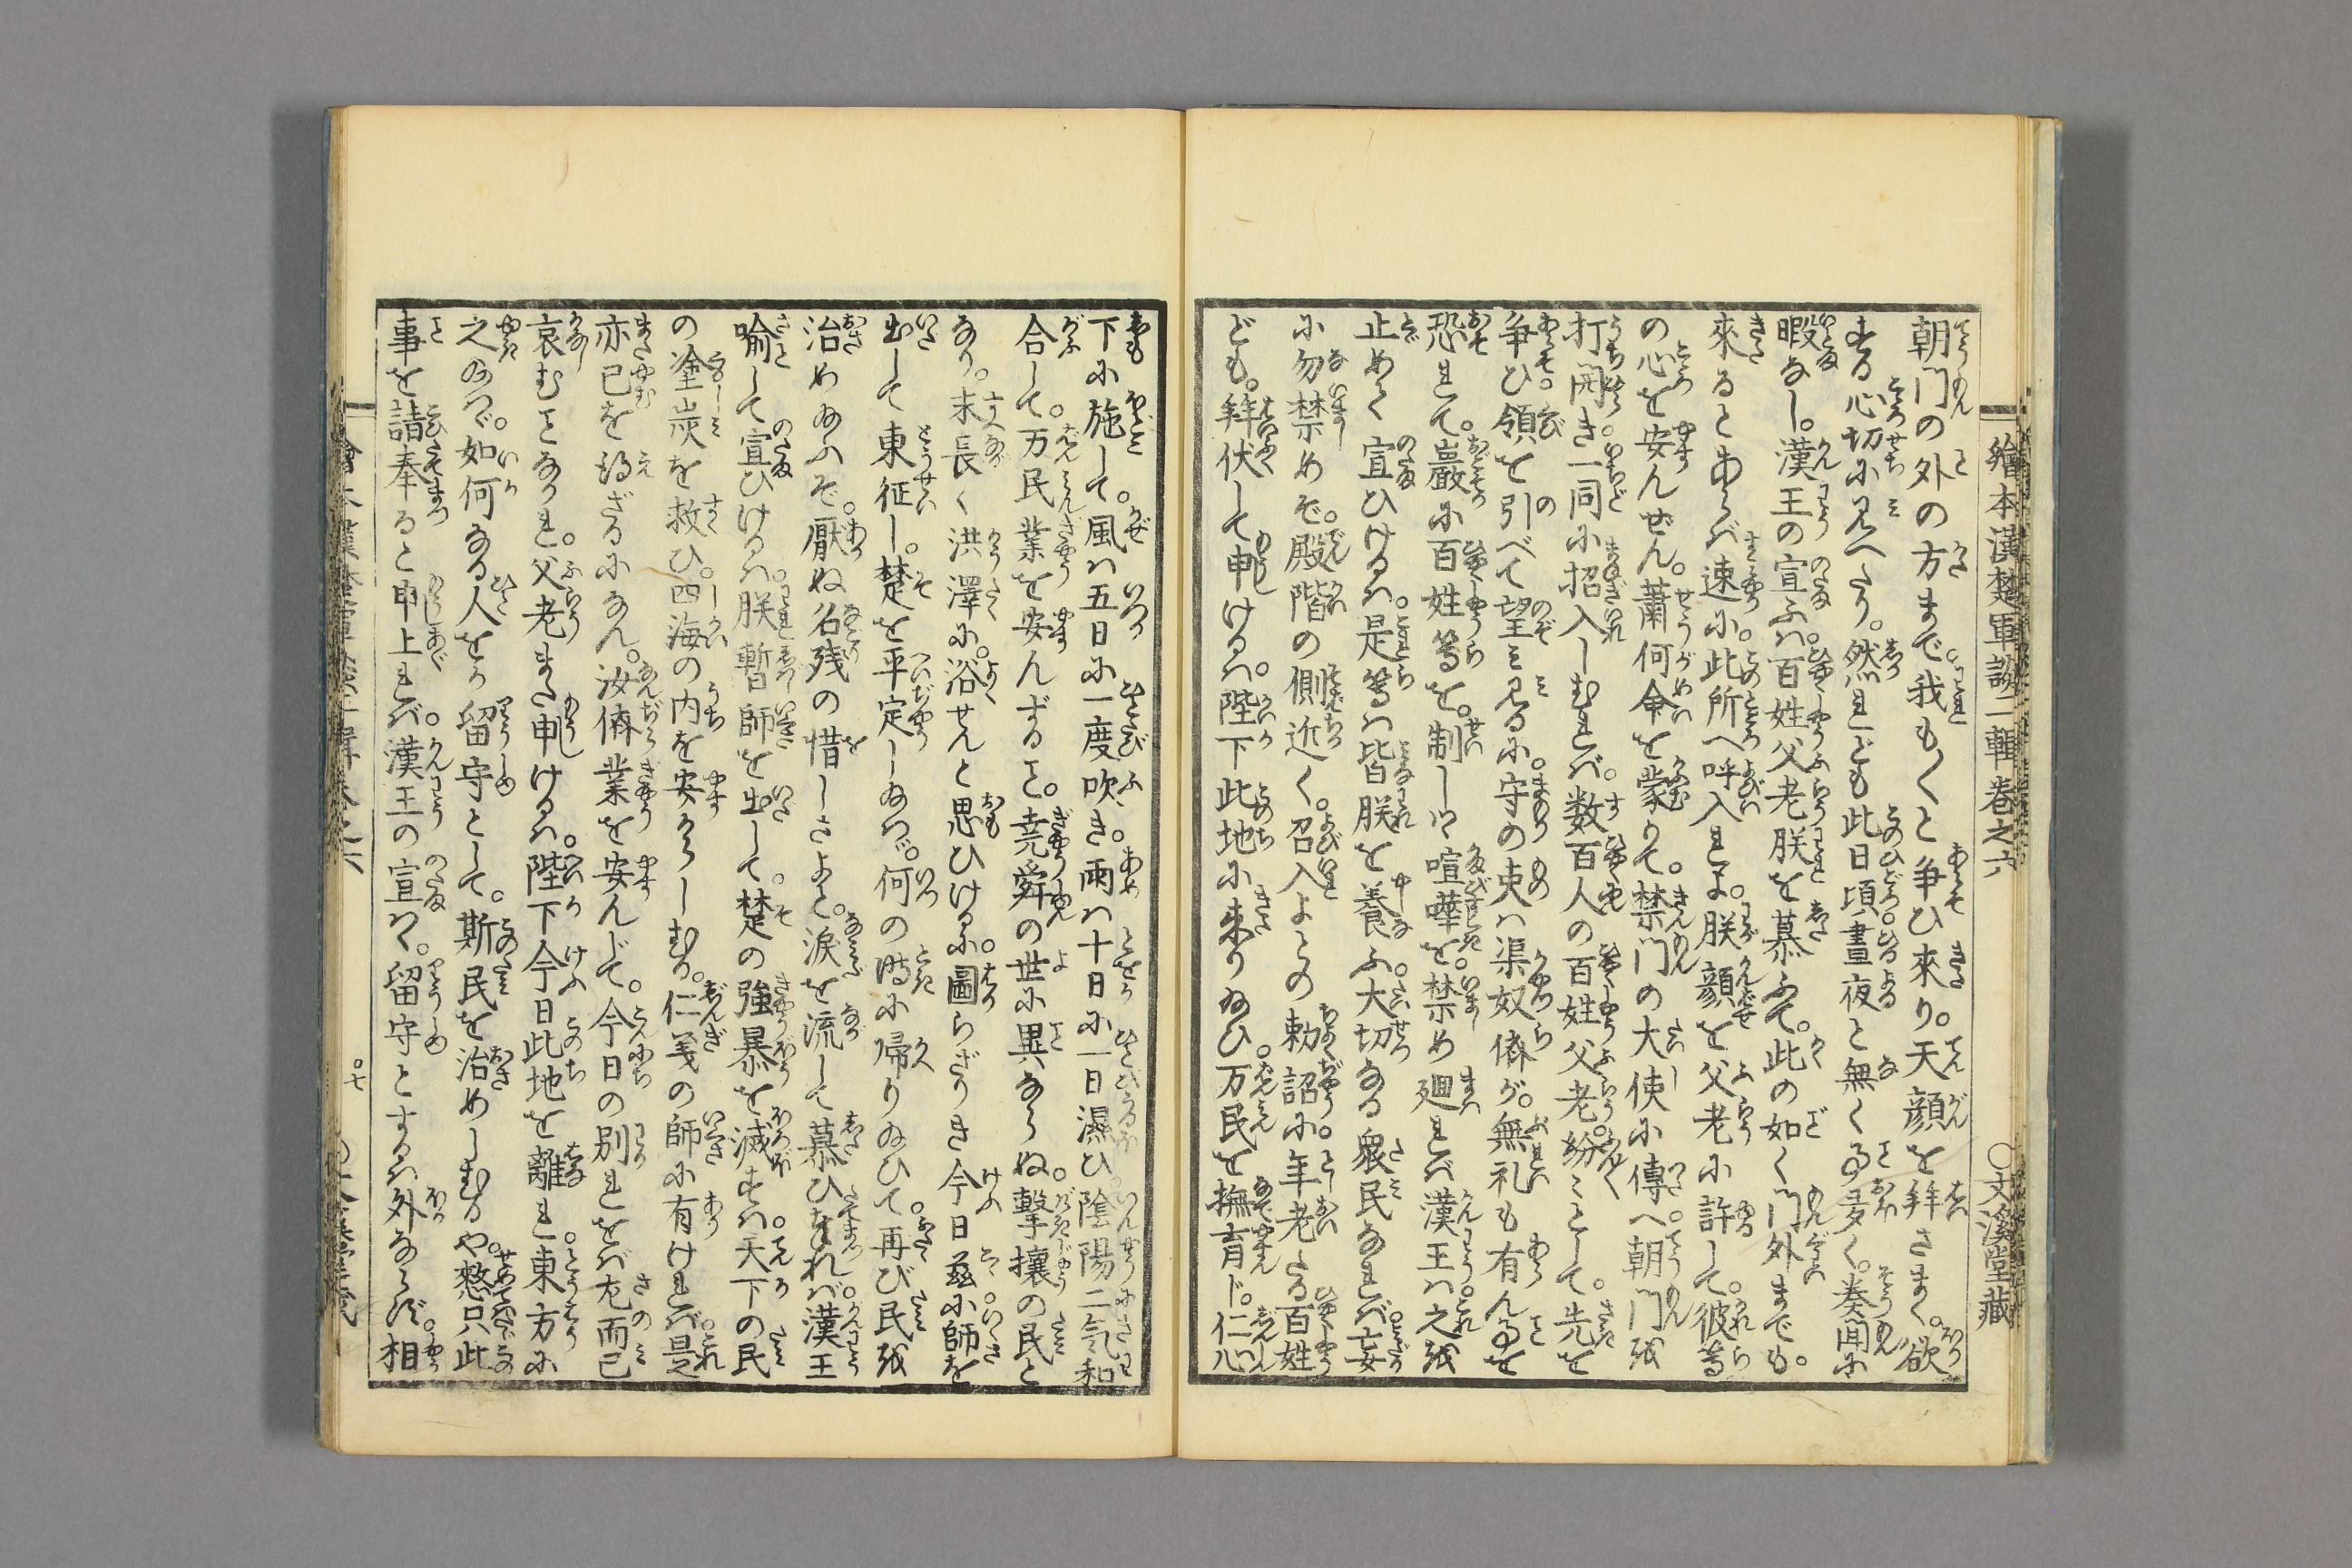 繪本漢楚軍談二輯卷之六　〇文溪堂藏
朝門の外の方まで。我も〳〵と争ひ來り。天顔を拜さまく。欲
する心切に見へたり。然れども此日頃晝夜と無く事多く。奏聞に
暇なし。漢王の宣ふハ百姓父老朕を慕ふて。此の如く門外までも。
來るとあらバ速に。此所へ呼入れよ。朕顔を父老に許して。彼等
の心を安んぜん。蕭何命を蒙りて。禁門の大使に傳へ朝門を
打開き一同に招入しむれバ。数百人の百姓父老。紛々として。先を
争ひ。領を引べて望ミ見るに。守の吏ハ渠奴儕が。無礼も有ん事を
恐れて。嚴に百姓等を。制しつゝ喧嘩を。禁め廻れバ漢王ハ之を
止めて宣ひけるハ。是等ハ皆朕を養ふ。大切なる衆民なれバ。妄
に勿禁めそ。殿階の側近く。召入よとの勅詔に。年老たる百姓
ども。拜伏して申けるハ。陛下此地に來り給ひ。万民を撫育ド。仁心
下に施して。風ハ五日に一度吹き。雨ハ十日に一日濕ひ。陰陽二気和
合して。万民業を安んずること。尭舜の世に異ならぬ。擊攘の民と
なり。末長く洪澤に。浴せんと思ひけるに。圖らざりき今日茲に。師を
出して東征し。楚を平定し給ハゞ。何の時に帰り給ひて。再び民を
治め給ふぞ。厭ぬ名残の惜しさよと。涙を流して慕ひ奉れバ。漢王
喩して宣ひけるハ。朕暫師を出して。楚の強暴を滅すハ。天下の民
の塗炭を救ひ。四海の内を安からしむる。仁義の師に有けれバ。是
亦已を得ざるになん。汝儕業を安んじて。今日の別れをバ左而已
哀むことなかれ。父老また申けるハ。陛下今日此地を離れ。東方に
之給ハゞ。如何なる人をか留守として。斯民を治めしむるや。憖只此
事を請奉ると申上れバ。漢王の宣はく。留守とするハ外ならず。相
七